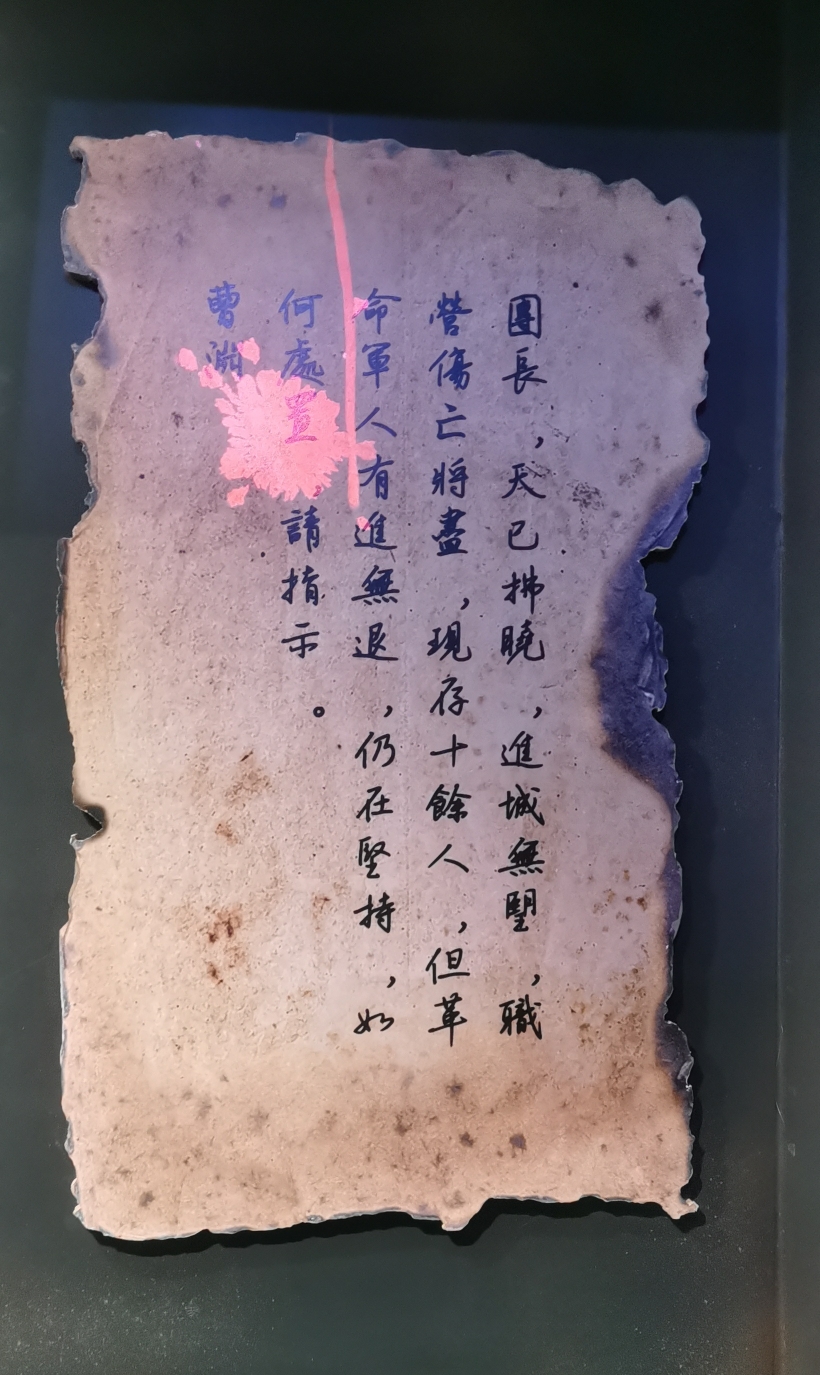 團長，天已拂曉，進城無望，職
營傷亡將盡，現存十餘人，但革
命軍人有進無退，仍在堅持，如
何處置，請指示。
曹淵